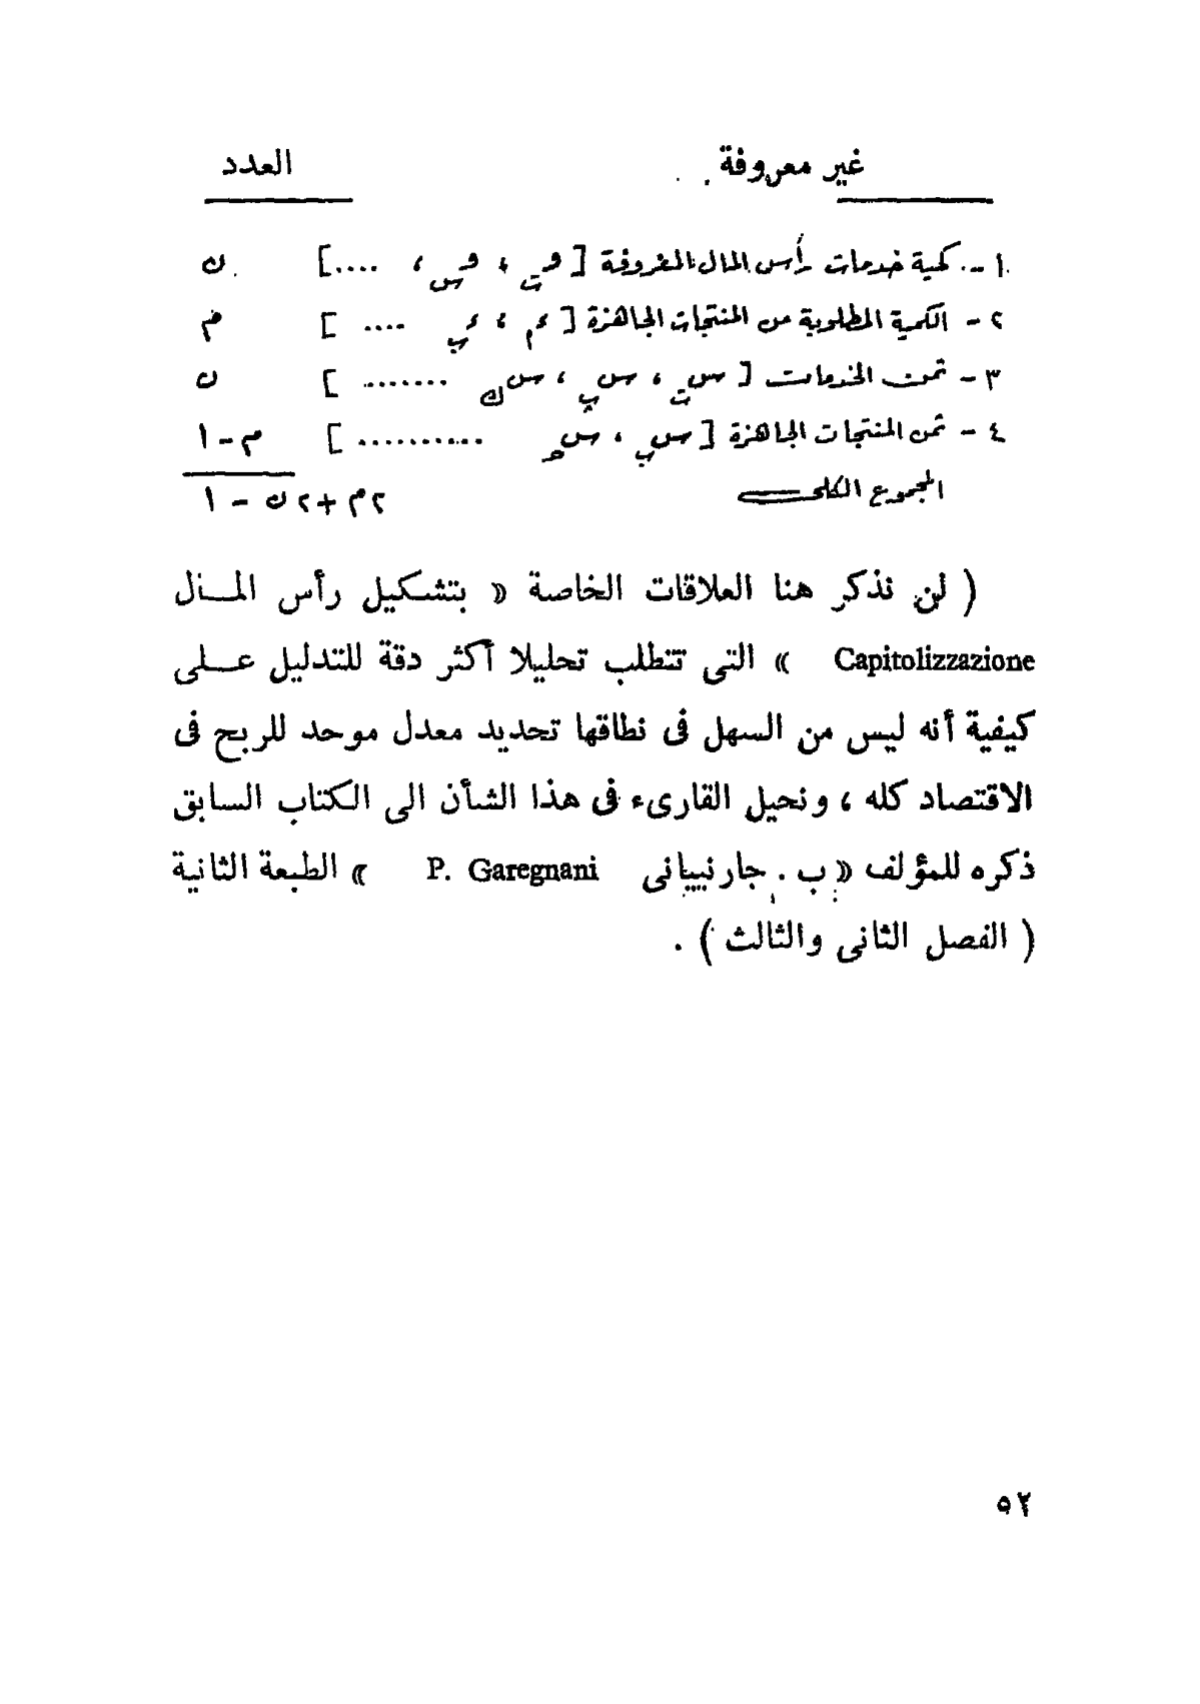 غير معروفة العدد
١ - كمية خدمات رأس المال المعروفة [ و ت ، و س ، .... ] ن
٢ - الكمية المطلوبة من المنتجات الجاهزة [ .... ] م
٣ - ثمن الخدمات [ س ت ، س پ ، س ك ........ ] ن
٤ - ثمن المنتجات الجاهزة [ س ب ، س ح ........... ] م - ١
المجموع الكلى ٢م + ٢ن - ١
( لن نذكر هنا العلاقات الخاصة « بتشكيل رأس المــال
Capitolizzazione » التى تتطلب تحليلا أكثر دقة للتدليل عــلى
كيفية أنه ليس من السهل فى نطاقها تحديد معدل موحد للربح فى
الاقتصاد كله ، ونحيل القارىء فى هذا الشأن الى الكتاب السابق
ذكره للمؤلف « ب . جارنييانى P. Garegnani » الطبعة الثانية
( الفصل الثانى والثالث ) .
٥٢